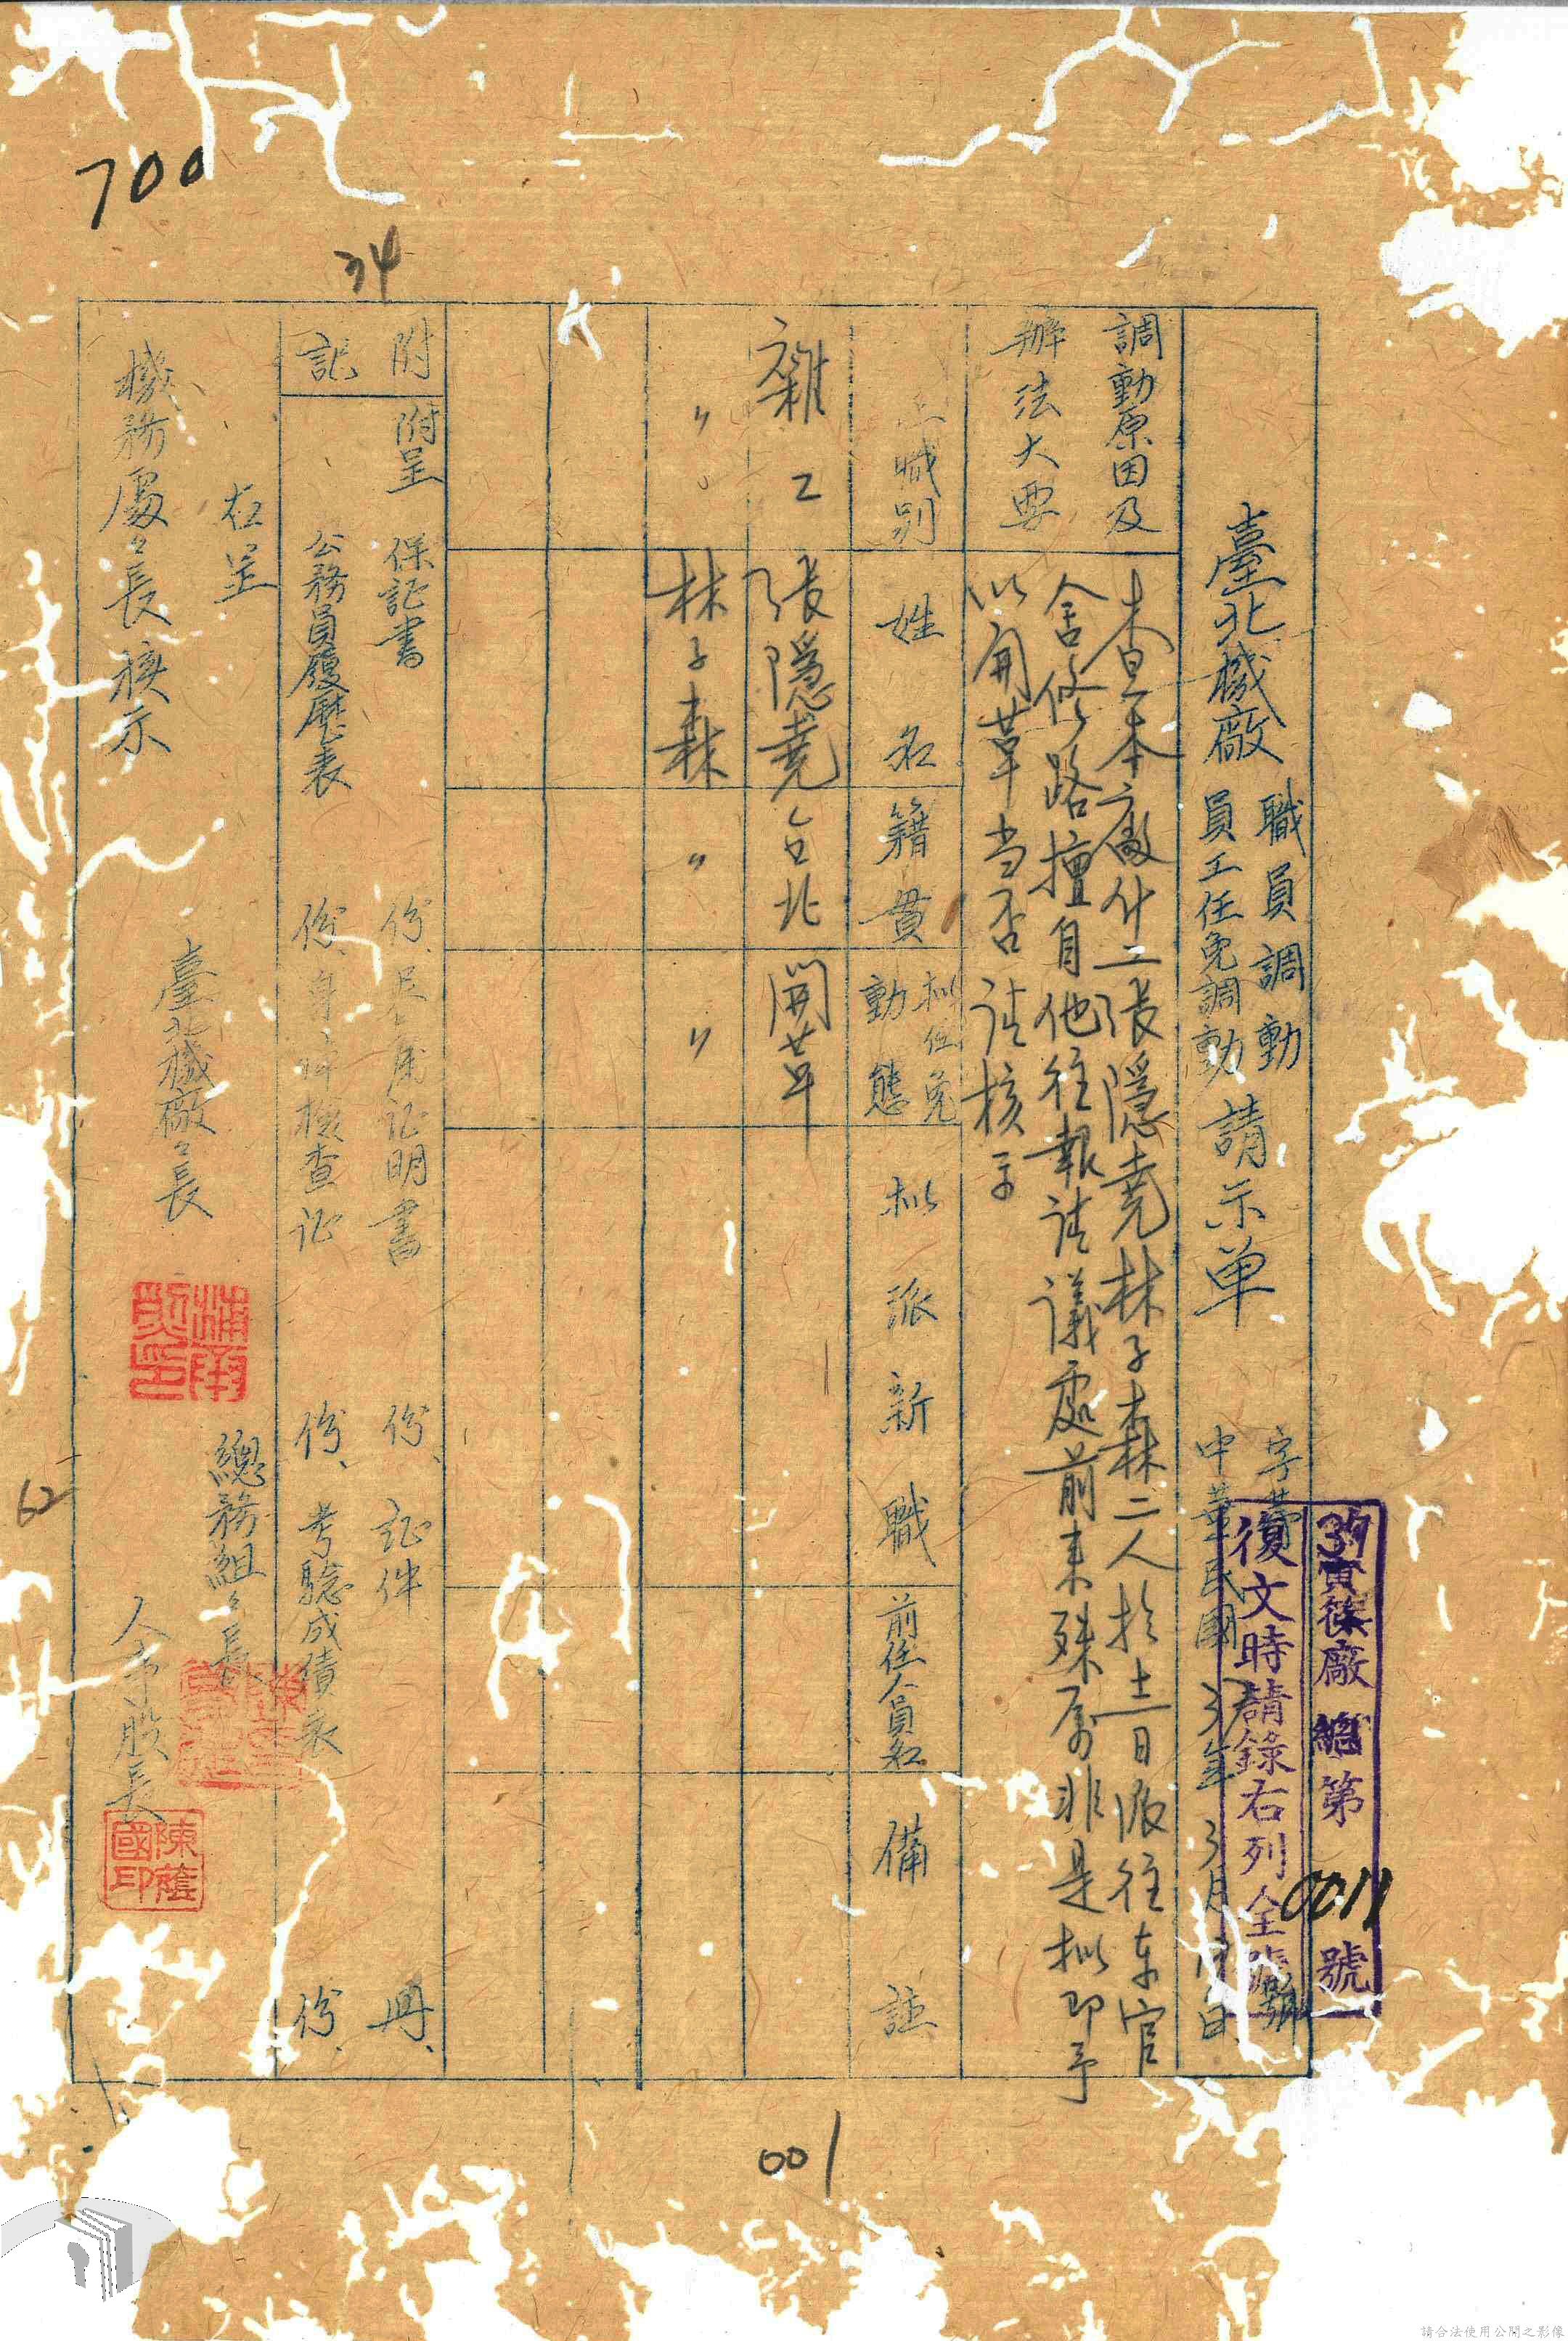 37寶篠廠總第0011號
復文時請錄右列全號
臺北機廠 職員調動 員工任免調動 請示单
字第 號
中華民國37年3月 日
調動原因及
辦法大要
本廠什工張隱堯林子森二人於十二日派往车官
舍修路擅自他往報请議處前来殊屬非是拟即予
以開革当否请核示
職別
姓名
籍貫
拟任免
動態
拟派新職
前任人員名
備註
雜工 張隱堯 台北 開革
〃 林子森 〃 〃
附記
附呈 保証書 份、 証明書 份、 証件 冊、
公務員履歷表 份、身体檢查证 份、考驗成債表 份、
右呈
機務處々長核示
臺北機廠々長
總務組々長
人事股長
陳蔭國印
700
34
62
001
請合法使用公開之影像